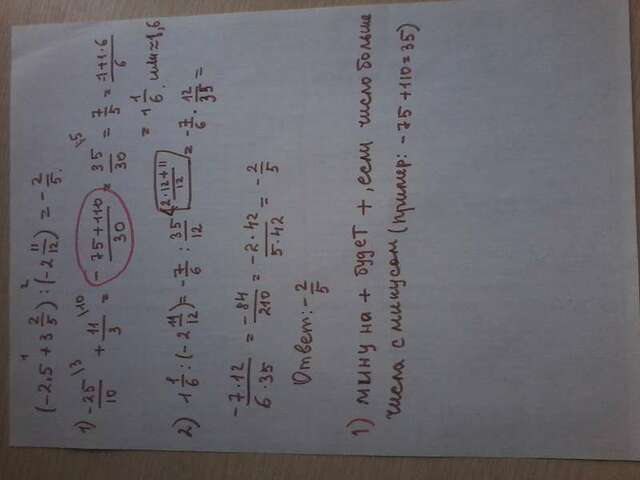 (-2,5 + 3 2/5) : (-2 11/12) = - 2/5.
1) -25/10 \3 + 11/3 \10 = -75+110/30 = 35/30 \5 = 7/5 = -1+1·6/6
= 1 1/6. или ≈ 1,6
2) 1 1/6 : (-2 11/12) = -7/6 : 35/12 (2·12+11/12) = -7/6 · 12/35 =
-7·12/6·35 = -84/210 = -2·42/5·42 = -2/5
Ответ: -2/5
1) мину на + будет +, если число больше
числа с минусом (пример: -75+110=35)